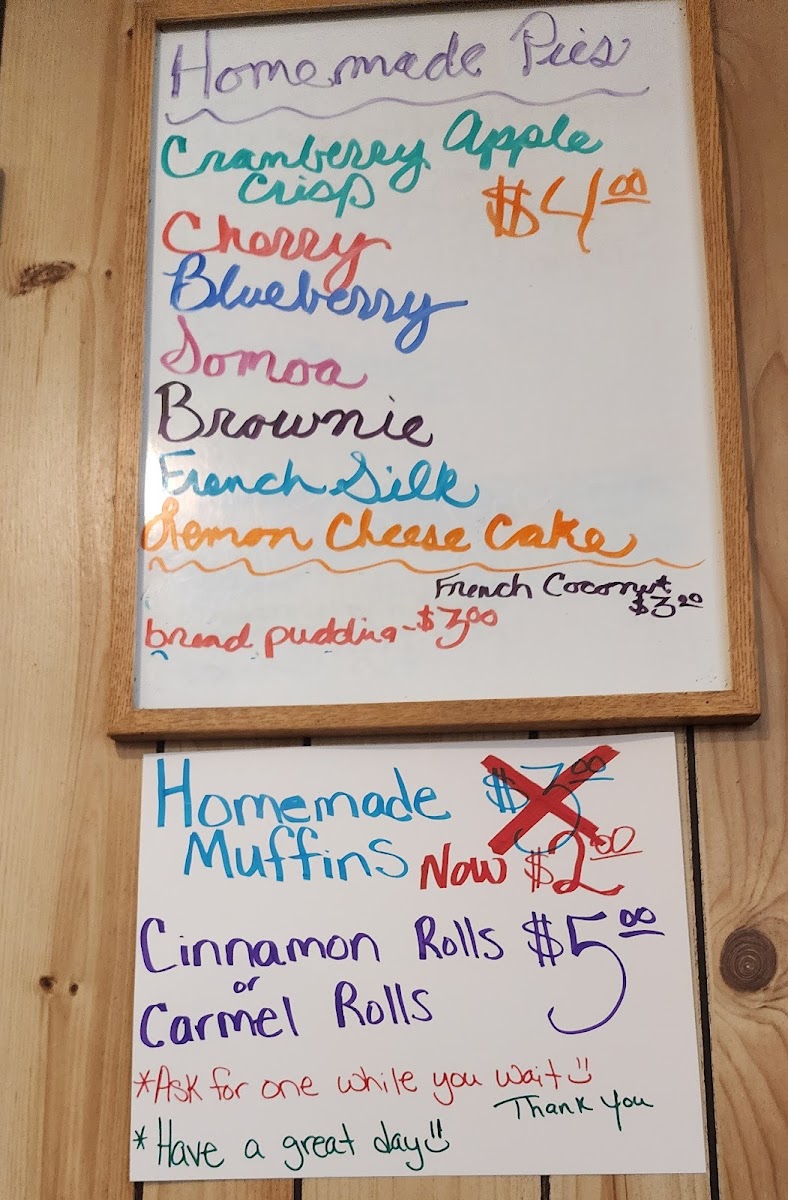 Homemade Pies
Cranberry Apple
Crisp
$4.00
Cherry
Blueberry
Somoa
Brownie
French Silk
Lemon Cheese Cake
French Coconut
$3.00
bread pudding - $3.00
Homemade $3.00
Muffins Now $2.00
Cinnamon Rolls $5.00
or
Carmel Rolls
*Ask for one while you wait :)
Thank You
*Have a great day :)